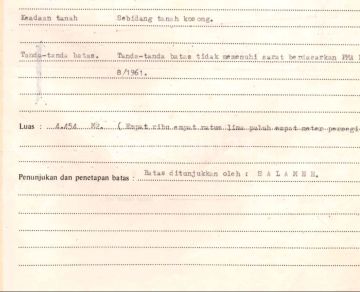 Keadaan tanah Sebidang tanah kosong.
Tanda-tanda batas. Tanda-tanda batas tidak memenuhi sarat berdasarkan PMA
8/1961.
Luas : 4.454 M2. ( Empat ribu empat ratus lima puluh empat meter persegi
Penunjukan dan penetapan batas : Batas ditunjukkan oleh : S A L A M E H.